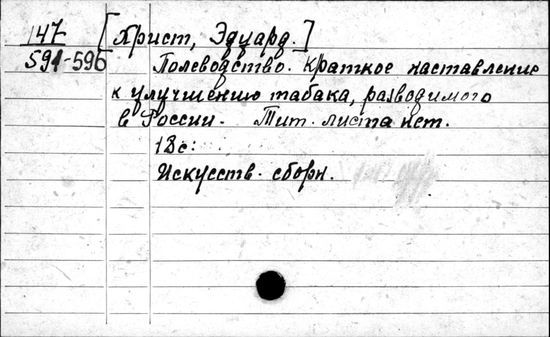 147
591-596
[Христ, Эдуард.]
Полеводство. Краткое наставление
к улучшению табака, разводимого
в России. Тит. листа нет.
18с.
Искусств. сборн.